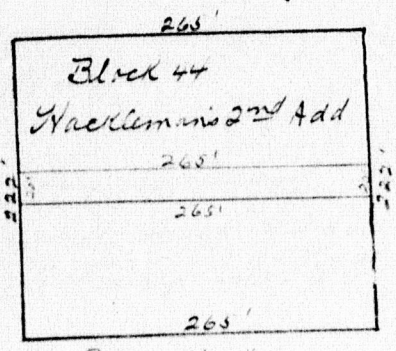 265'
Block 44
Hackleman's 2nd Add
265'
222'
222'
265'
265'